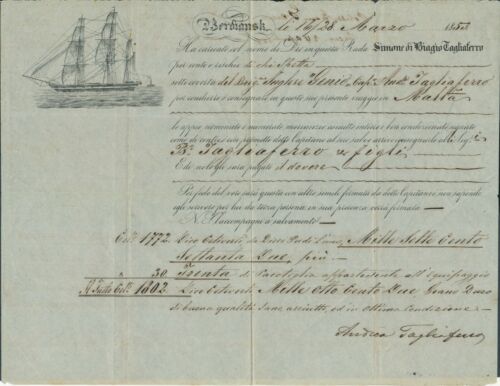 Berdiansk, li 16/28 Marzo 185
Ha caricato col nome di Dio in questa Rada Simone di Biagio Tagliaferro
per conto e rischio di chi spetta
sotto coverta del Brig. Inglese Genio Cap. And. Tagliaferro
per condurre e consegnare in questo suo presente viaggio in Malta
le appie nominate e numerate mercanzie asciutte intiere e ben condizionate segnate
come di contro, così promette detto Capitano al suo salvo arrivo consegnarle alli Sigri
Bi. Tagliaferro e figli
E di nolo gli sarà pagato il dovere
Per fede del vero sarà questa con altre simili firmata da detto Capitano, non sapendo
egli scrivere per lui da terza persona, in sua presenza verrà firmata.
N. N. accompagni a salvamento
Cetti 1772. Dico Cetverti di Grano Duro Mille Sette Cento
Settanta Due, più
" 30 Trenta di Pacotiglia appartenente all' Equipaggio
In Tutto Cetti 1802 Dico Cetverti Mille Otto Cento Due Grano Duro
di buona qualità sano asciutto, ed in ottima Condizione
Andrea Tagliaferro